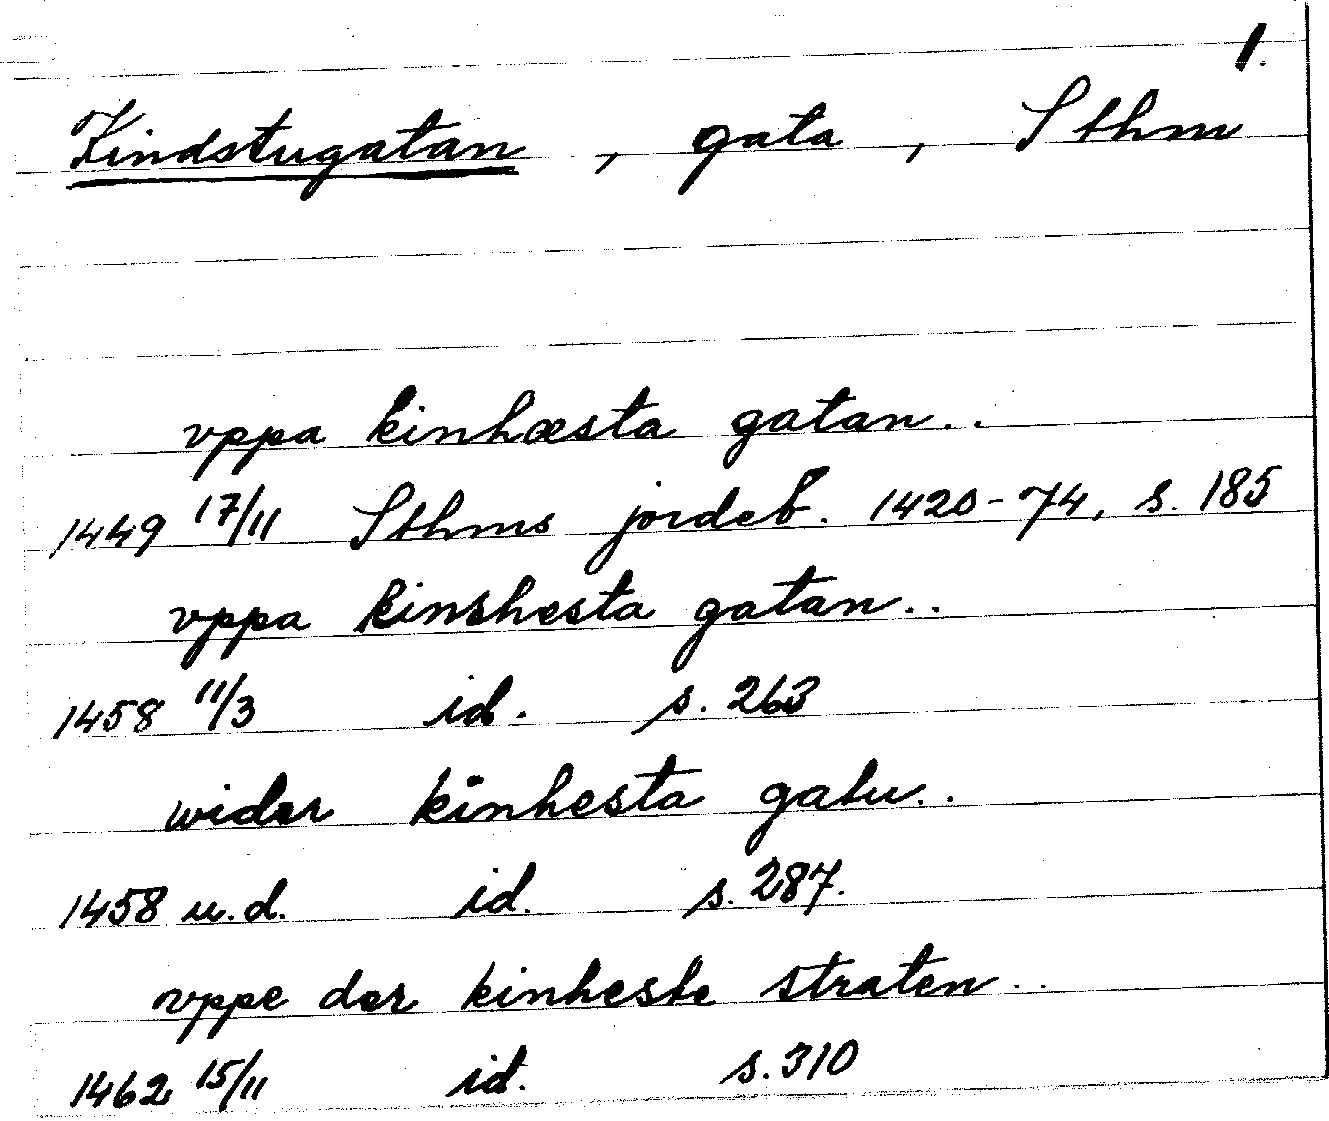 1.
Kindstugatan, gata, Sthm
vppa kinhæsta gatan..
1449 17/11 Sthms jordeb. 1420-74, s. 185
vppa kinshesta gatan..
1458 11/3 id. s. 263
wider kinhesta gatu..
1458 u.d. id. s. 287.
vppe der kinheste straten..
1462 15/11 id. s. 310